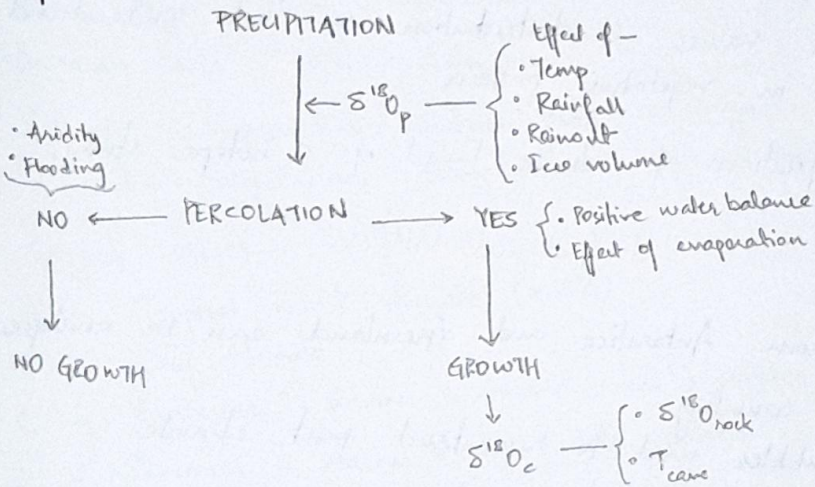 PRECIPITATION
Effect of -
• Temp
← δ¹⁸Op
• Rainfall
• Rainout
• Ice volume
• Aridity
• Flooding
NO ← PERCOLATION → YES
• Positive water balance
• Effect of evaporation
NO GROWTH
GROWTH
δ¹⁸Oc
• δ¹⁸Orock
• Tcave